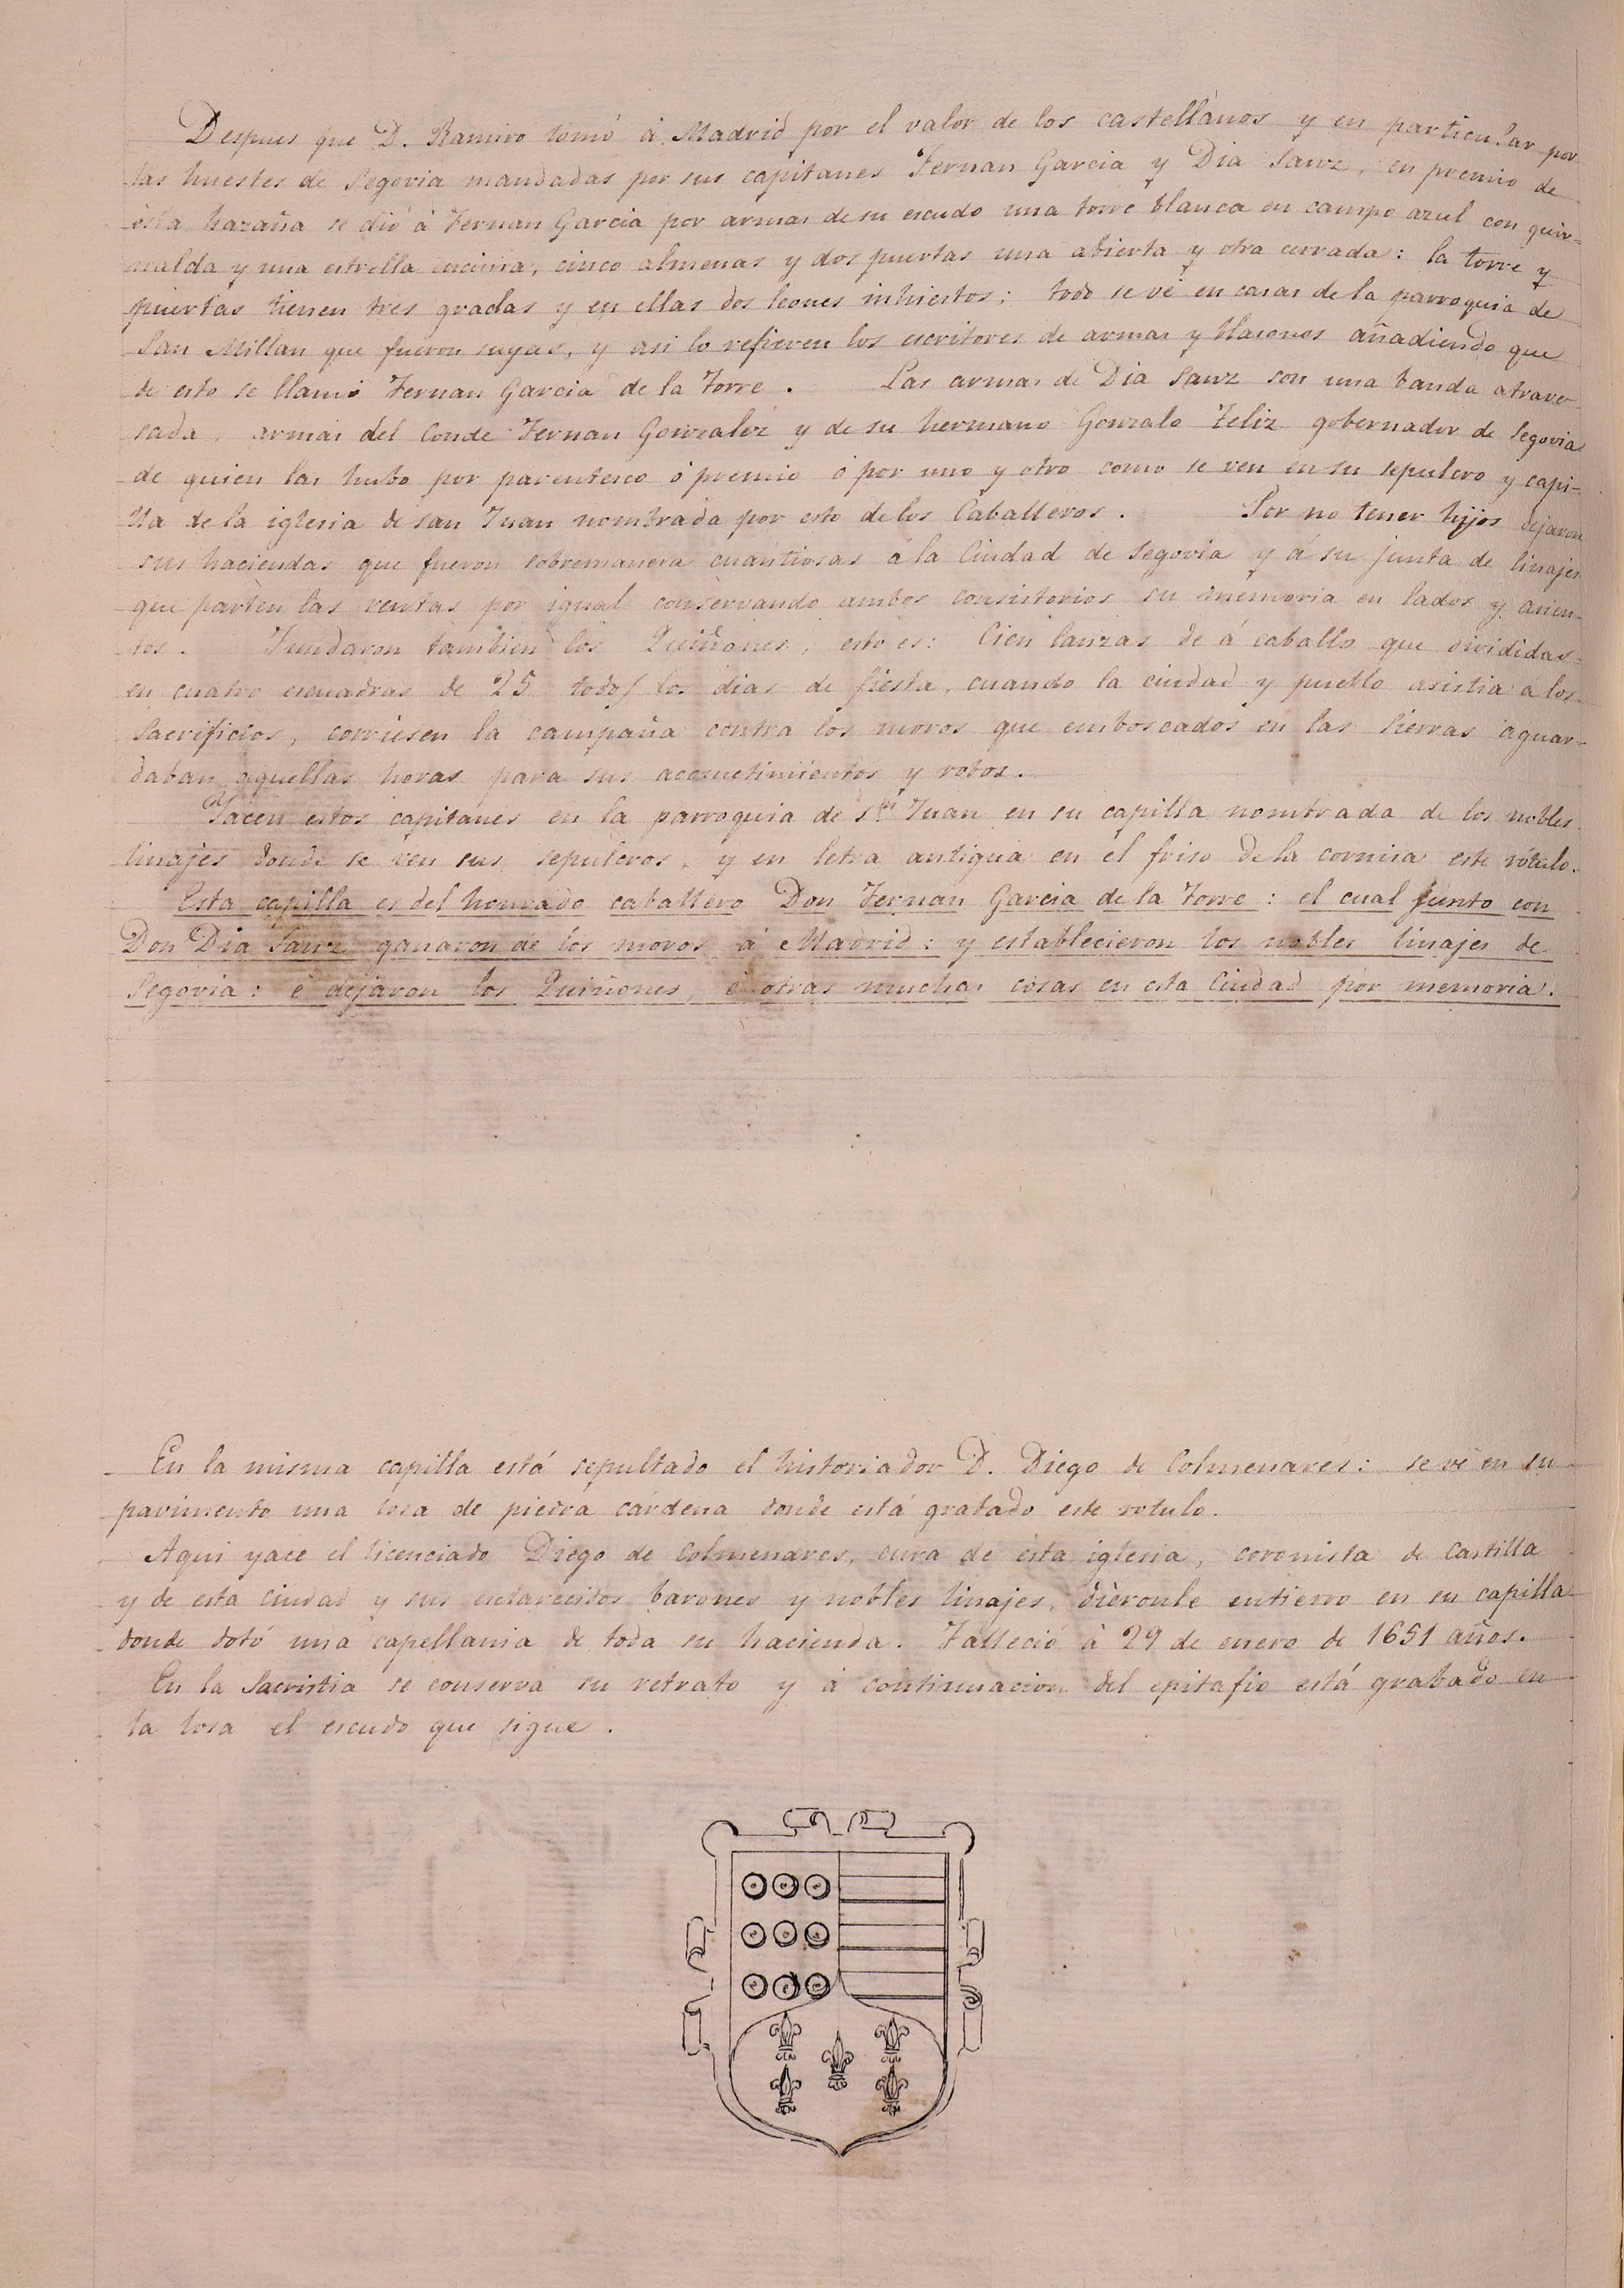 Despues que D. Ramiro tomó á Madrid por el valor de los castellanos y en particular por
las huestes de Segovia mandadas por sus capitanes Fernan Garcia y Dia Sanz, en premio de
ésta hazaña se dió á Fernan Garcia por armas de su escudo una torre blanca en campo azul con guir-
nalda y una estrella encima, cinco almenas y dos puertas una abierta y otra cerrada: la torre y
puertas tienen tres gradas y en ellas dos leones inhiestos; todo se vé en casas de la parroquia de
San Millan que fueron suyas, y asi lo refieren los escritores de armas y blasones añadiendo que
de esto se llamó Fernan Garcia de la Torre. Las armas de Dia Sanz son una banda atrave-
sada, armas del Conde Fernan Gonzalez y de su hermano Gonzalo Feliz gobernador de Segovia
de quien las hubo por parentesco ó premio ó por uno y otro como se ven en su sepulcro y capi-
lla de la iglesia de san Juan nombrada por esto de los Caballeros. Por no tener hijos dejaron
sus haciendas que fueron sobremanera cuantiosas á la Ciudad de Segovia y á su junta de linajes
que parten las rentas por igual conservando ambos consistorios su memoria en lados y asien-
tos. Fundaron tambien los Quiñones, esto es: Cien lanzas de á caballo que divididas
en cuatro escuadras de 25 todos los dias de fiesta, cuando la ciudad y pueblo asistia á los
Sacrificios, corriesen la campaña contra los moros que emboscados en las Sierras aguar-
daban aquellas horas para sus acometimientos y robos.
Yacen estos capitanes en la parroquia de Sn Juan en su capilla nombrada de los nobles
linajes donde se ven sus sepulcros, y en letra antigua en el friso de la cornisa este rótulo.
Esta capilla es del honrado caballero Don Fernan Garcia de la Torre: el cual junto con
Don Dia Sanz ganaron de los moros á Madrid: y establecieron los nobles linajes de
Segovia: é dejaron los Quiñones, é otras muchas cosas en esta Ciudad por memoria.
En la misma capilla está sepultado el historiador D. Diego de Colmenares: se vé en su
pavimento una losa de piedra cárdena donde está grabado este rotulo.
Aqui yace el licenciado Diego de Colmenares, cura de ésta iglesia, coronista de Castilla
y de esta ciudad y sus esclarecidos barones y nobles linajes, diéronle entierro en su capilla
donde dotó una capellania de toda su hacienda. Falleció á 29 de enero de 1651 años.
En la Sacristia se conserva su retrato y á continuacion del epitafio está grabado en
la losa el escudo que sigue.